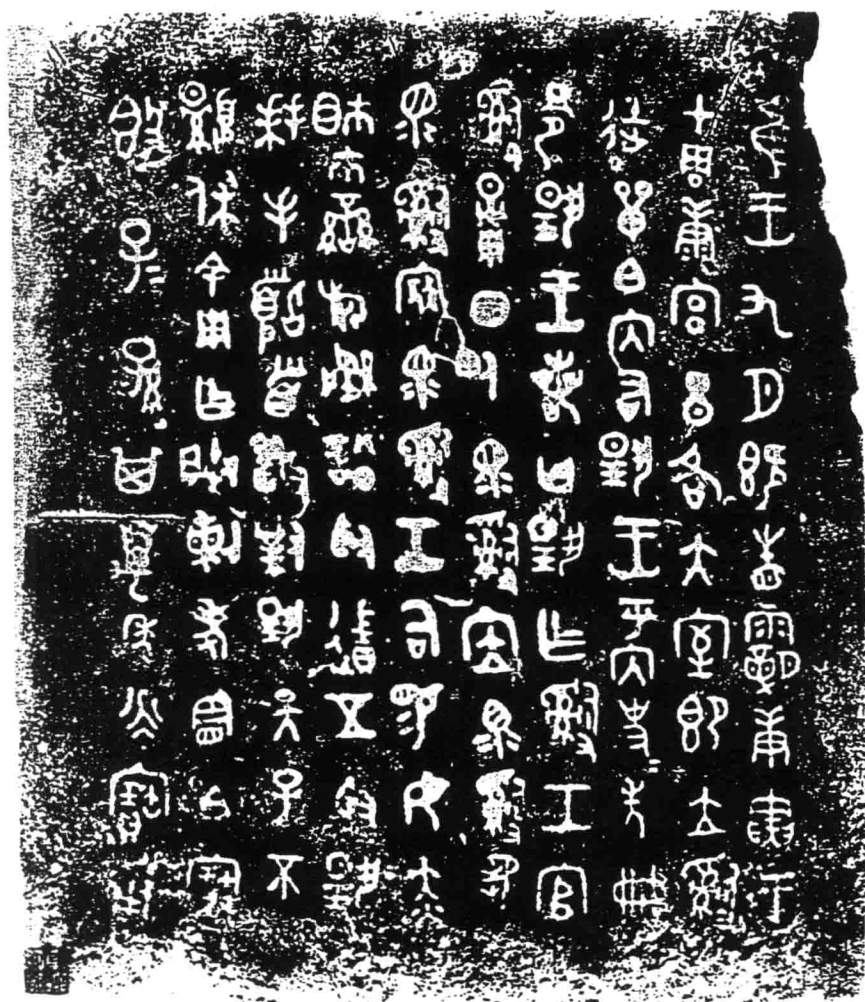 隹王九月既眚霸庚寅王
才周康宮旦各大室即立𤔲
徒單白內右揚王乎內史冊
令揚王若曰揚乍𤔲工官
𤔲量田甸眔𤔲眔𤔲芻
眔𤔲寇眔𤔲工司易女赤
巿䜌旂訊訟取五寽揚
拜手首敢對揚天子不
顯休余用乍朕剌考白寶
簋子子孫孫其萬年永寶用